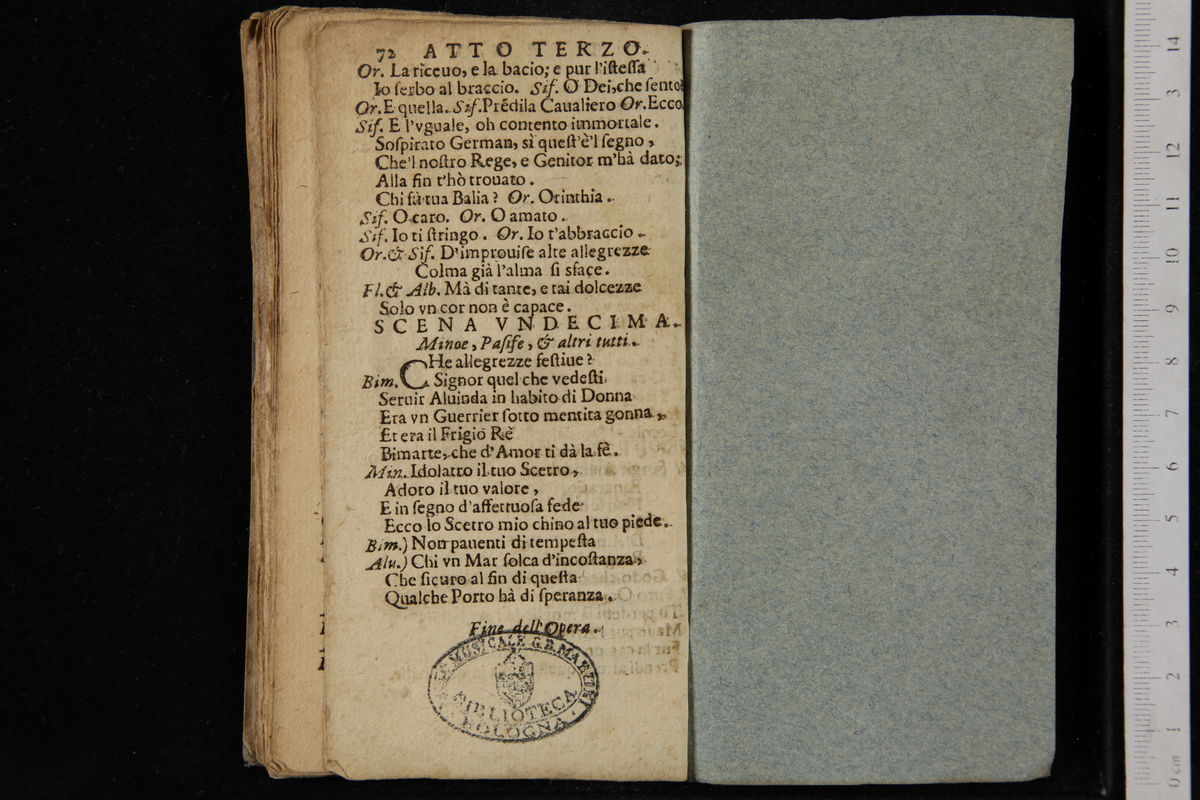 72 ATTO TERZO.
Or. La riceuo, e la bacio; e pur l'iſteſſa
Io ſerbo al braccio. Sif. O Dei, che ſento?
Or. E quella. Sif. Prédila Caualiero Or. Ecco
Sif. E l'vguale, oh contento immortale.
Soſpirato German, sì queſt'è'l ſegno,
Che'l noſtro Rege, e Genitor m'hà dato;
Alla fin t'hò trouato.
Chi fù tua Balia? Or. Orinthia.
Sif. O caro. Or. O amato.
Sif. Io ti ſtringo. Or. Io t'abbraccio.
Or. & Sif. D'improuiſe alte allegrezze
Colma già l'alma ſi sface.
Fl. & Alb. Mà di tante, e tai dolcezze
Solo vn cor non è capace.
SCENA VNDECIMA.
Minoe, Paſife, & altri tutti.
CHe allegrezze feſtiue?
Bim. Signor quel che vedeſti
Seruir Aluinda in habito di Donna
Era vn Guerrier ſotto mentita gonna,
Et era il Frigio Rè
Bimarte, che d'Amor ti dà la fè.
Min. Idolatro il tuo Scetro,
Adoro il tuo valore,
E in ſegno d'affettuoſa fede
Ecco lo Scetro mio chino al tuo piede.
Bim.) Non pauenti di tempeſta
Alu.) Chi vn Mar ſolca d'incoſtanza,
Che ſicuro al fin di queſta
Qualche Porto hà di ſperanza.
Fine dell'Opera.
MUSICALE G.B. MARTINI
BIBLIOTECA
BOLOGNA
0 cm 1 2 3 4 5 6 7 8 9 10 11 12 3 14